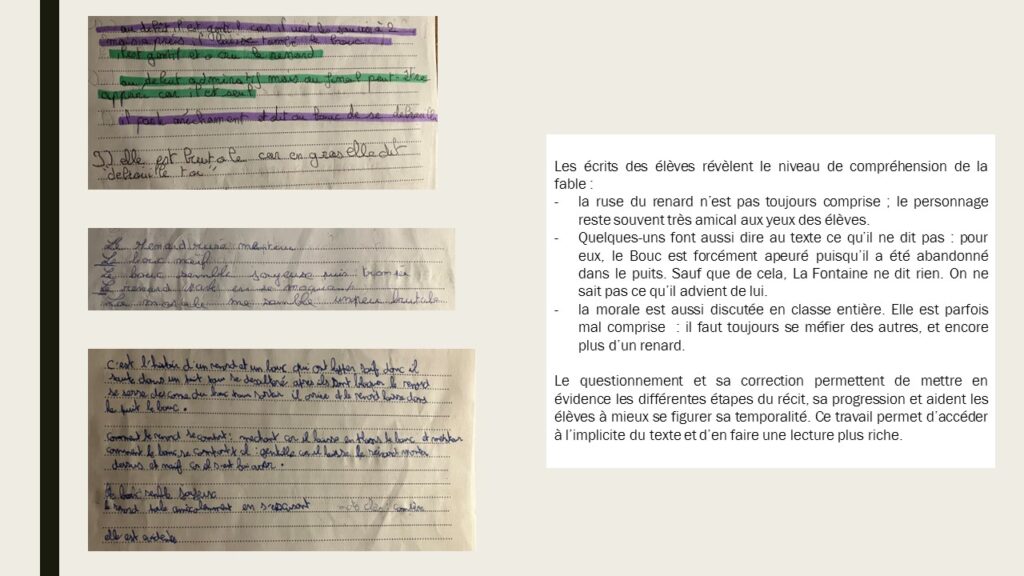 au début il est gentil car il veut le sauvé à 2
mais après il laisse tombé le bouc
il est gentil et a cru le renard
au début admiratif mais au final peut être
appeuré car il est seul
il parle méchament et dit au bouc de se débrouillé
elle est brutale car en gras elle dit
"débrouille toi"
Le renard rusé menteur
Le bouc naïf
Le bouc semble soyeuse puis
Le renard parle en se moquant
La morale me samble unpeu brutale
c'est l'histoire d'un renard et un bouc qui ont soif donc il
saute dans un puit pour se désaltéré après ils sont bloquer le renard
se serre des corne du bouc pour il le renard laisse dans
le puit le bouc.
comment le renard se comport : méchant car il laisse le bouc et menteur
comment le bouc se comport il : gentille car il laisse le renard monter
dessus et naïf car il s'est fait avoir.
le bouc semble soyeuse
le renard parle amicalement en s'exposant mots clés
elle est
Les écrits des élèves révèlent le niveau de compréhension de la
fable :
- la ruse du renard n'est pas toujours comprise ; le personnage
reste souvent très amical aux yeux des élèves.
- Quelques-uns font aussi dire au texte ce qu'il ne dit pas : pour
eux, le Bouc est forcément apeuré puisqu'il a été abandonné
dans le puits. Sauf que de cela, La Fontaine ne dit rien. On ne
sait pas ce qu'il advient de lui.
- la morale est aussi discutée en classe entière. Elle est parfois
mal comprise : il faut toujours se méfier des autres, et encore
plus d'un renard.
Le questionnement et sa correction permettent de mettre en
évidence les différentes étapes du récit, sa progression et aident les
élèves à mieux se figurer sa temporalité. Ce travail permet d'accéder
à l'implicite du texte et d'en faire une lecture plus riche.